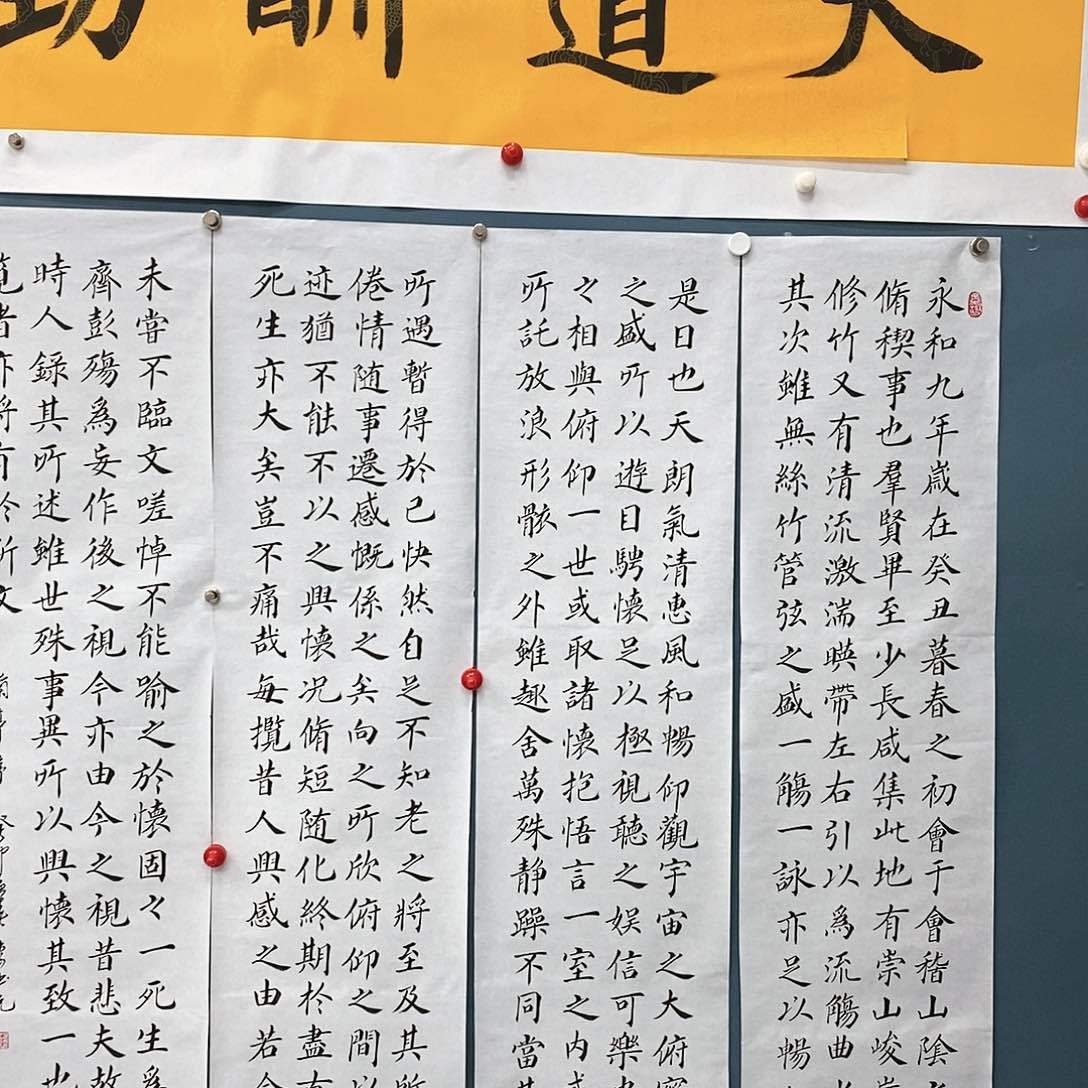 天道酬勤
永和九年歲在癸丑暮春之初會于會稽山陰
脩稧事也羣賢畢至少長咸集此地有崇山峻
修竹又有清流激湍暎帶左右引以爲流觴曲
其次雖無絲竹管弦之盛一觴一詠亦足以暢
是日也天朗氣清惠風和暢仰觀宇宙之大俯
之盛所以遊目騁懷足以極視聽之娱信可樂
々相與俯仰一世或取諸懷抱悟言一室之内
所託放浪形骸之外雖趣舍萬殊静躁不同當
所遇暫得於己快然自足不知老之將至及其所
倦情随事遷感慨係之矣向之所欣俯仰之間以
迹猶不能不以之興懷况脩短随化終期於盡
死生亦大矣豈不痛哉每攬昔人興感之由若
未甞不臨文嗟悼不能喻之於懷固々一死生爲
齊彭殤爲妄作後之視今亦由今之視昔悲夫故
時人録其所述雖世殊事異所以興懷其致一也
覧者亦將有於斯文